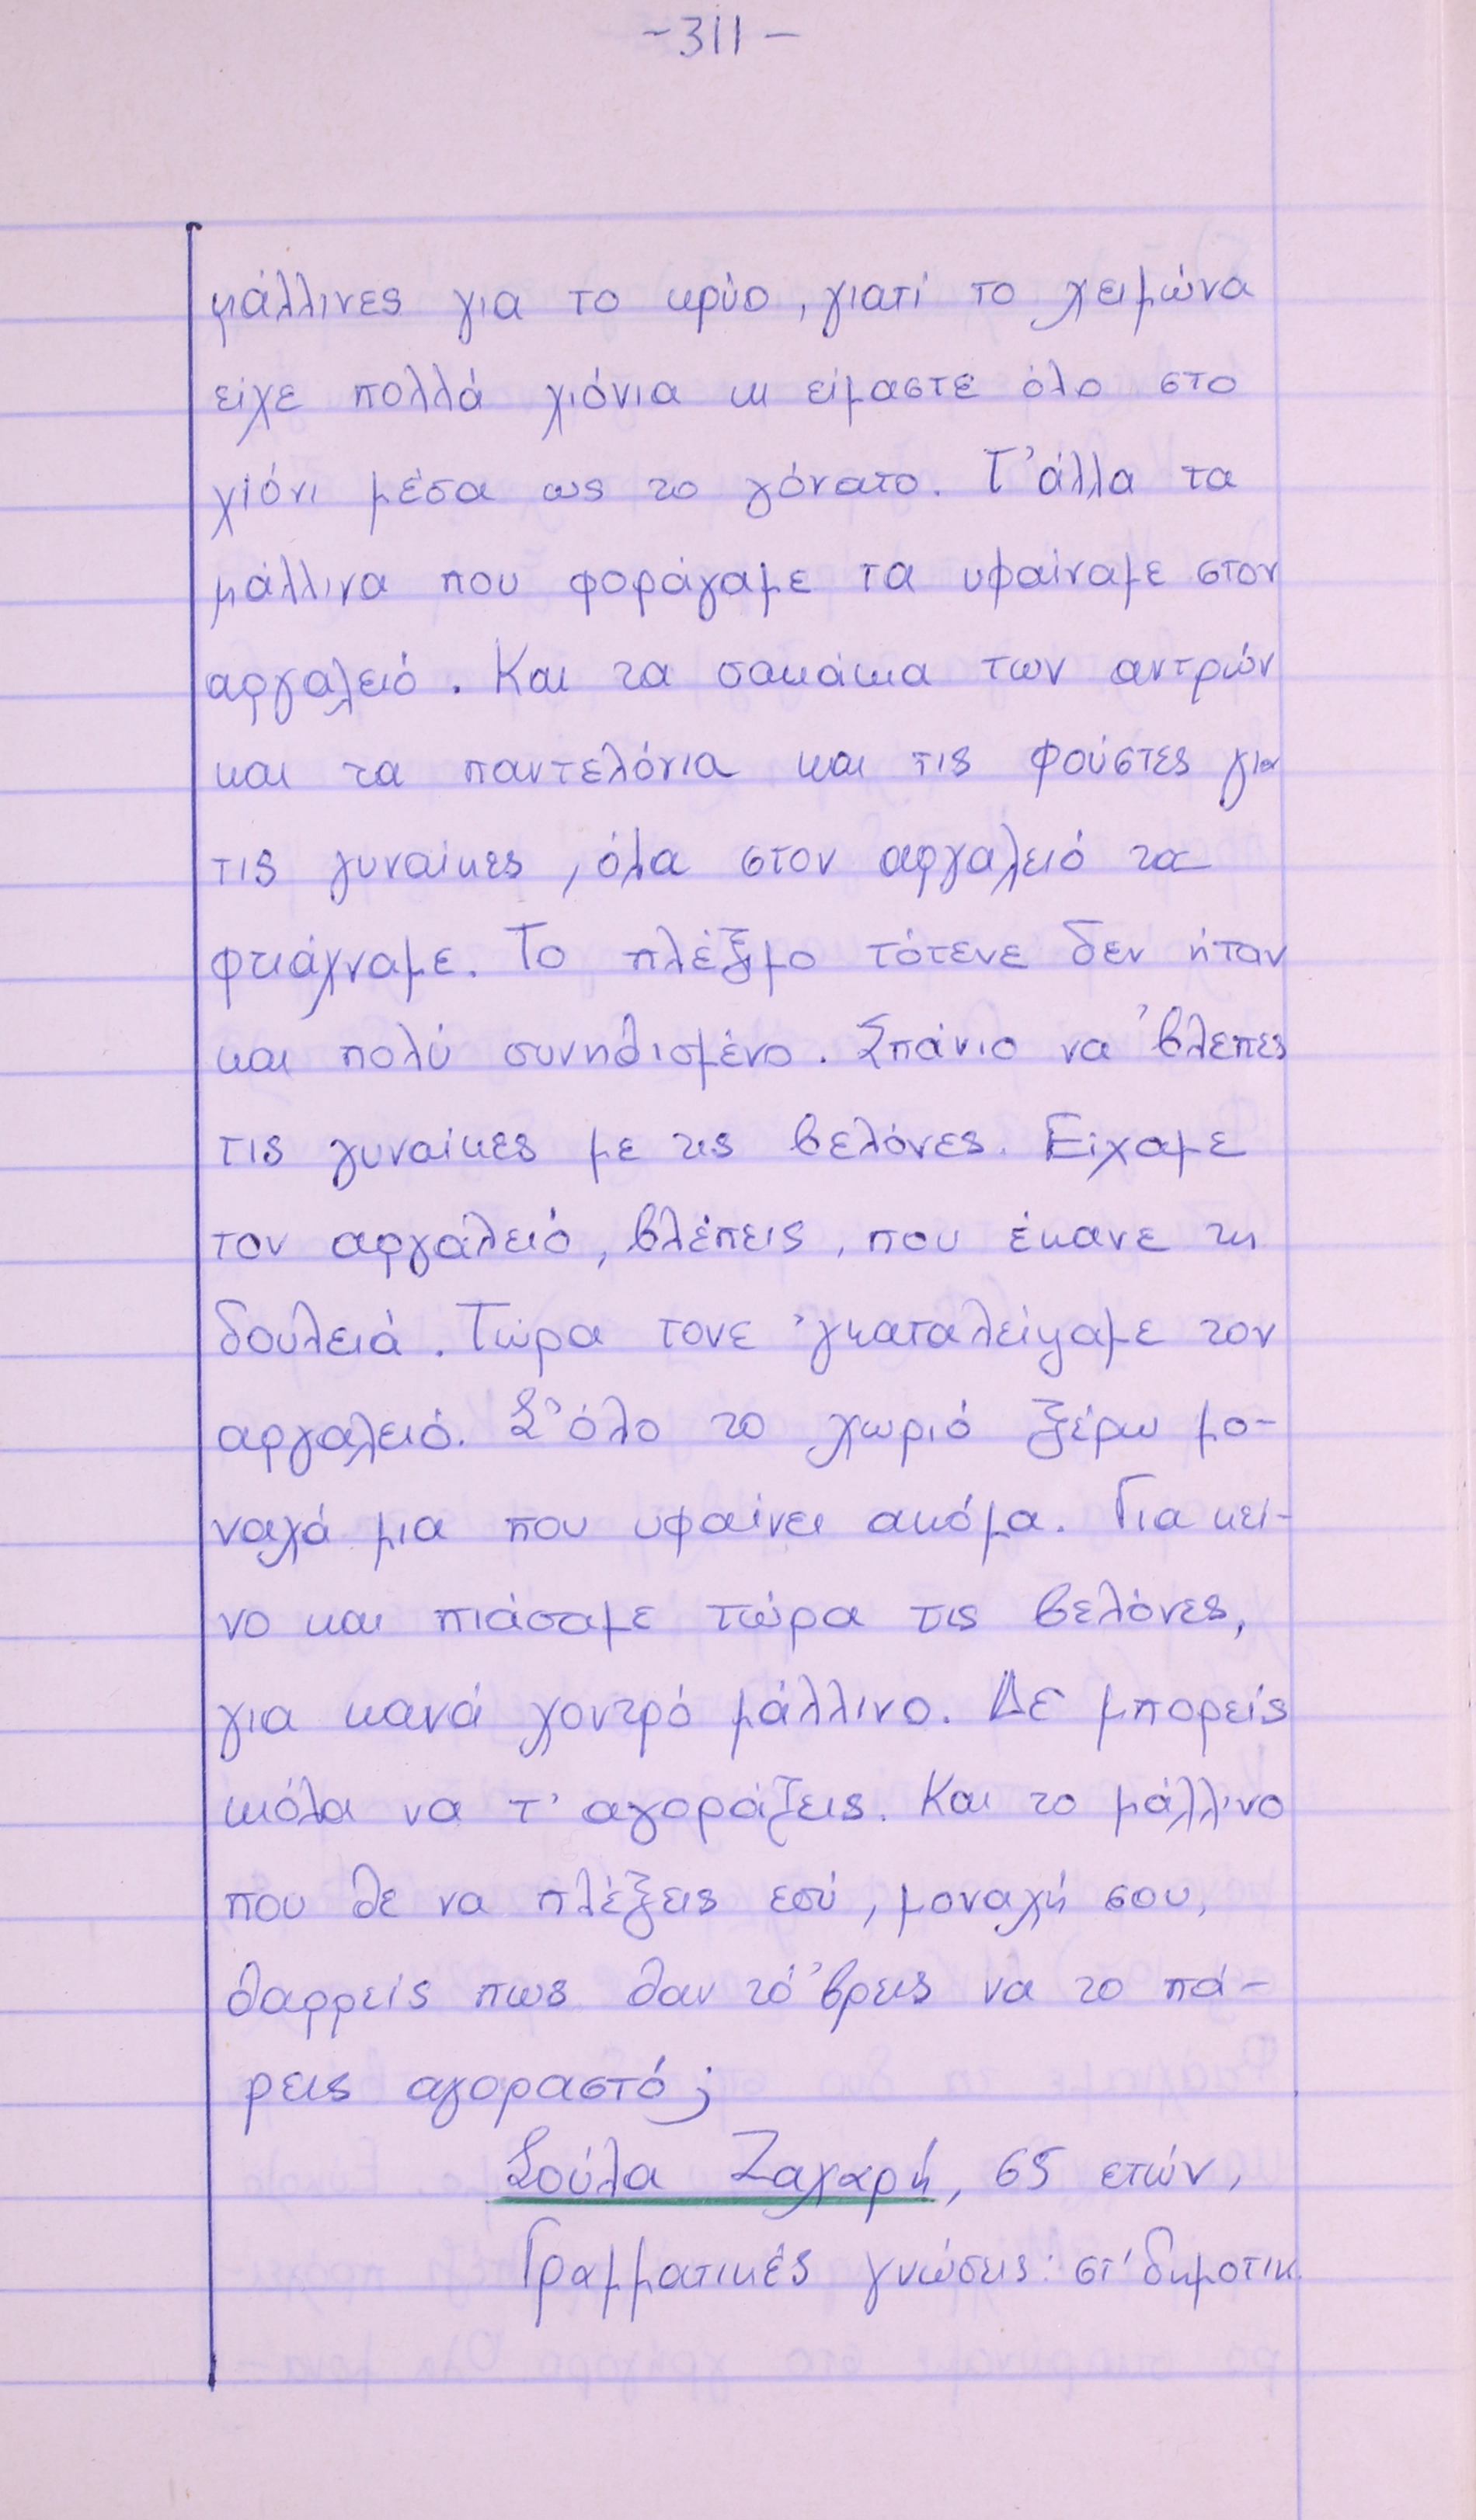 -311-
μάλλινες για το κρύο, γιατί το χειμώνα
είχε πολλά χιόνια κι είμαστε όλο στο
χιόνι μέσα ως το γόνατο. Τ' άλλα τα
μάλλινα που φοράγαμε τα υφαίναμε στον
αργαλειό. Και τα σακάκια των αντρών
και τα παντελόνια και τις φούστες για
τις γυναίκες, όλα στον αργαλειό τα
φτιάχναμε. Το πλέξιμο τότενε δεν ήταν
και πολύ συνηθισμένο. Σπάνιο να 'βλεπες
τις γυναίκες με τις βελόνες. Είχαμε
τον αργαλειό, βλέπεις, που έκανε τη
δουλειά. Τώρα τονε 'γκαταλείψαμε τον
αργαλειό. Σ' όλο το χωριό ξέρω μο-
ναχά μια που υφαίνει ακόμα. Για κεί-
νο και πιάσαμε τώρα τις βελόνες,
για κανά χοντρό μάλλινο. Δε μπορείς
κιόλα να τ' αγοράζεις. Και το μάλλινο
που θε να πλέξεις εσύ, μοναχή σου,
θαρρείς πως θαν τό 'βρεις να το πά-
ρεις αγοραστό;
Σούλα Ζαχαρή, 65 ετών,
Γραμματικές γνώσεις: στ' δημοτικ.